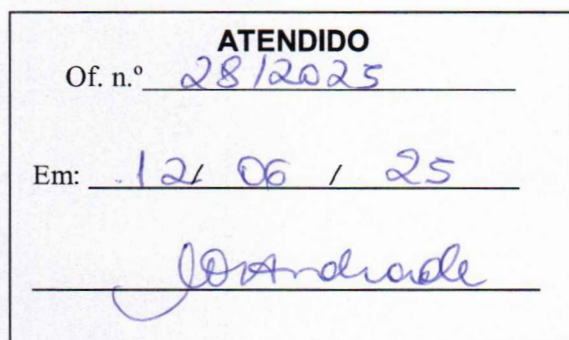 ATENDIDO
Of. n.º 28/2025
Em: 12/ 06 / 25
Andrade